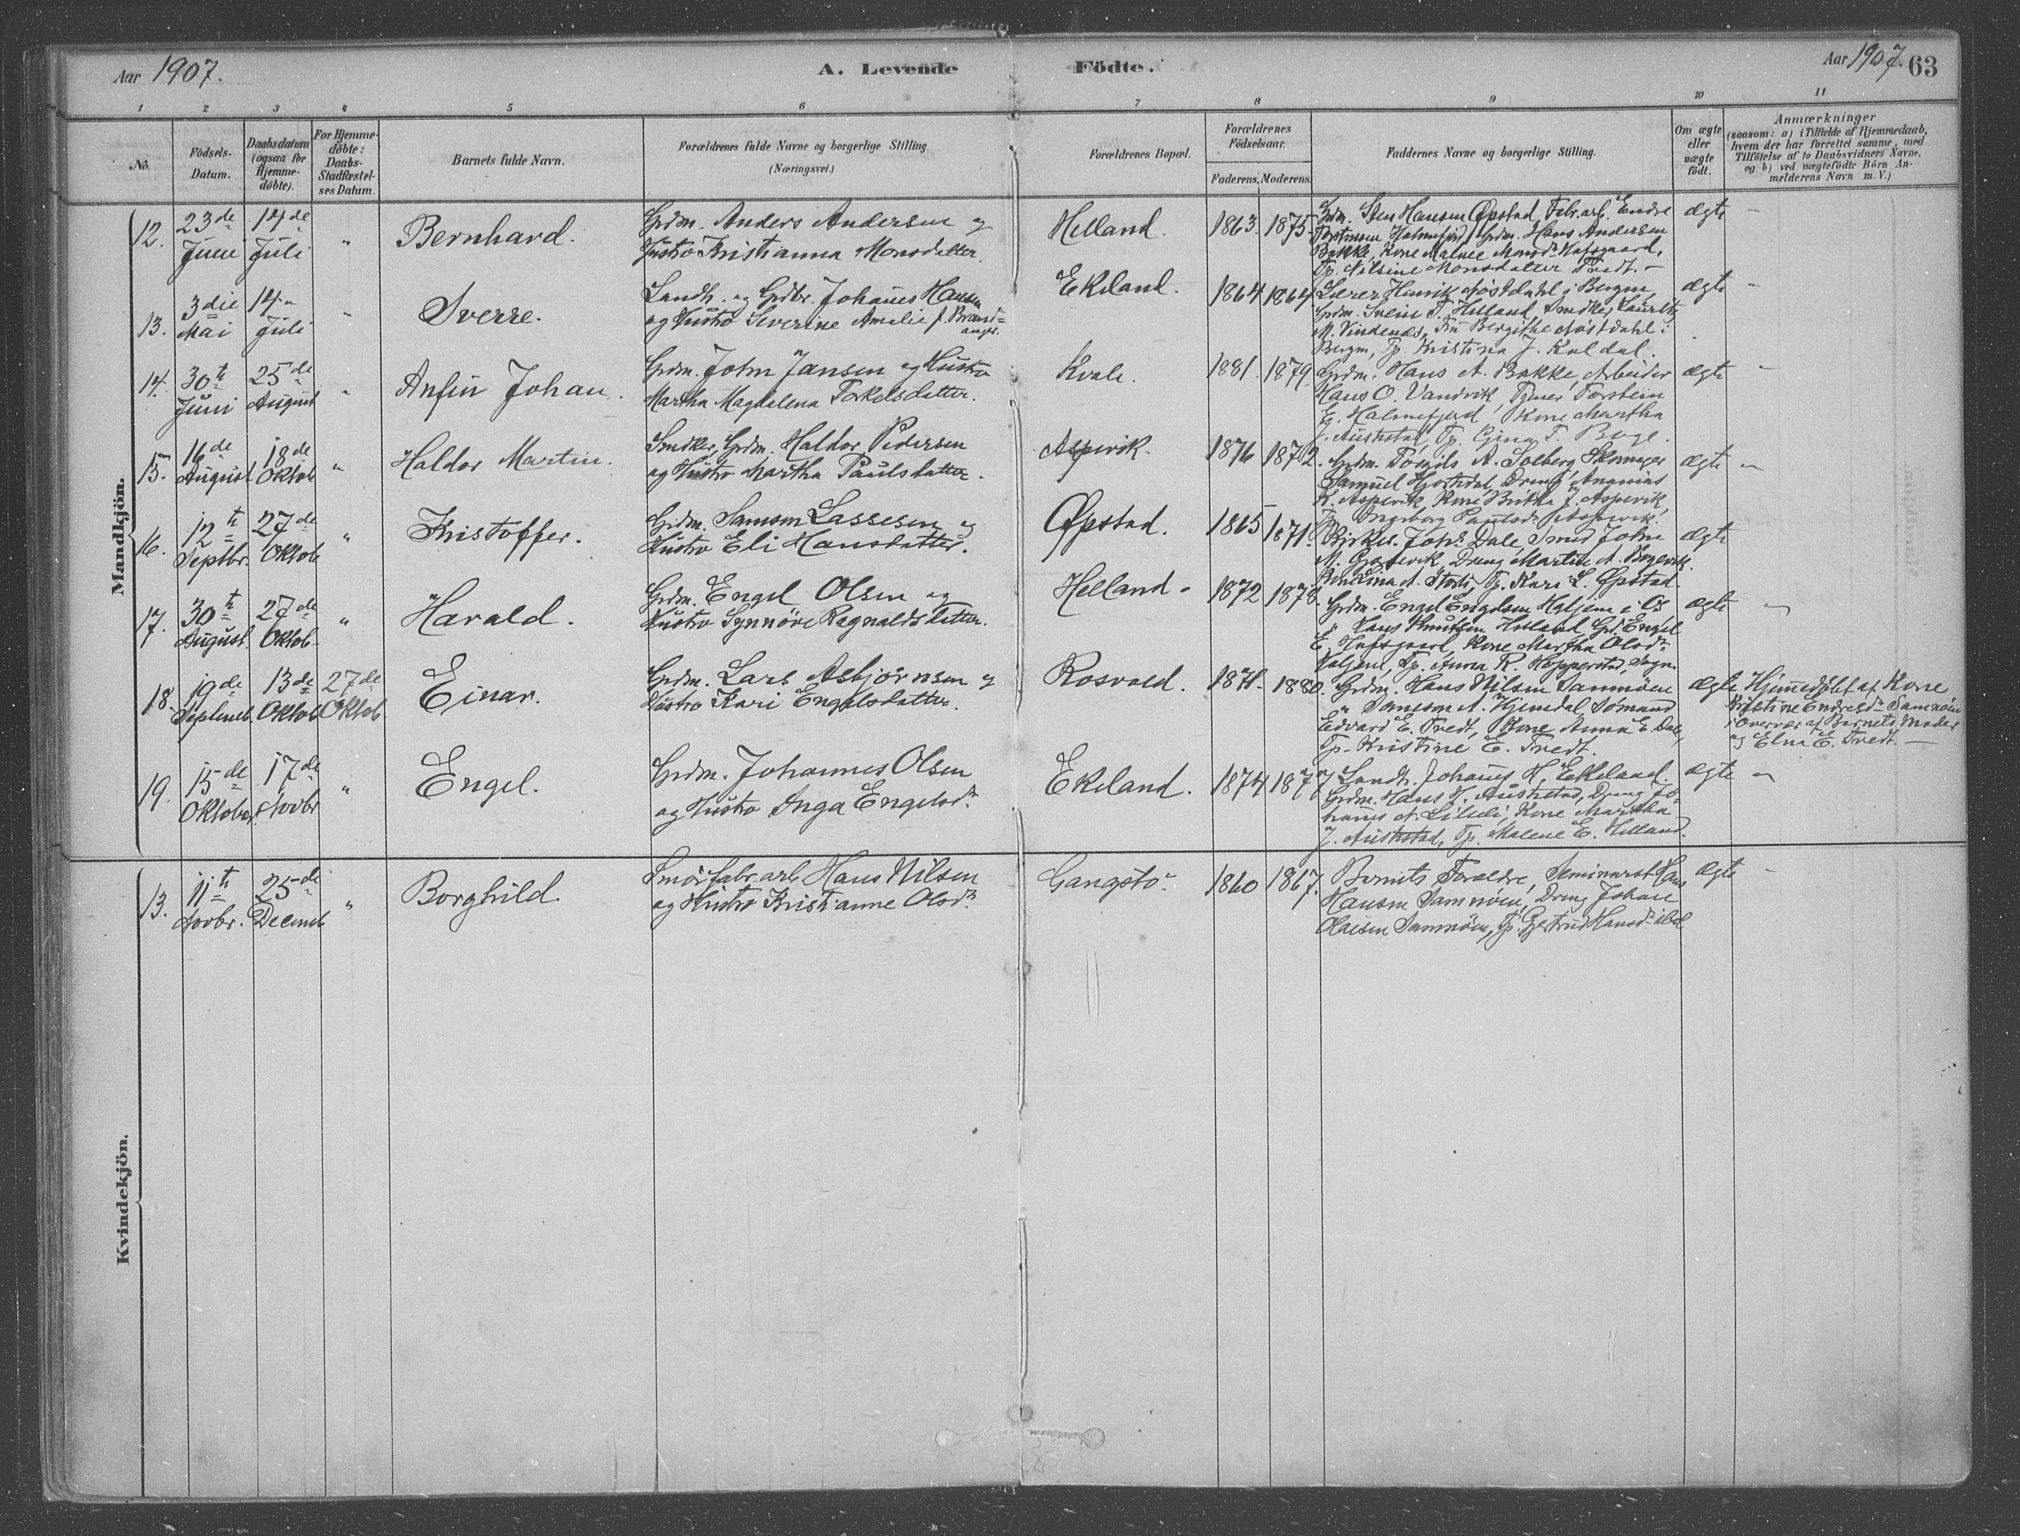 Aar 1907.
A. Levende Födte.
Aar 1907. 63
1 2 3 4 5 6 7 8 9 10 11
No.
Födsels-Datum.
Daabsdatum (ogsaa for Hjemme-döbte).
For Hjemme-döbte: Daabs-Stadfæstel-ses Datum.
Barnets fulde Navn.
Forældrenes fulde Navne og borgerlige Stilling (Næringsvei.)
Forældrenes Bopæl.
Forældrenes Födselsaar.
Faderens. Moderens.
Faddernes Navne og borgerlige Stilling.
Om ægte eller uægte födt.
Anmærkninger
(saasom: a) i Tilfælde af Hjemmedaab, hvem der har forrettet samme, med Tilföielse af to Daabsvidners Navne, og b) ved uægtefödte Börn An-melderens Navn m. V.)
Mandkjön.
12. 23de Juni 14de Juli " Bernhard.
Grdm. Anders Andersen og
Hustro Kristianna Monsdatter.
Helland. 1863. 1875.
Grdm. Sten Hansen Øpstad, Fabr.arb. Endre
Holmefjord, Grdm. Hans Andersen
Bakke, Kone Malene Monsdr Hafsgaard,
Tp. Nilsine Monsdatter Tvedt. –
ægte –
13. 3die Mai 14de Juli " Sverre.
Landh. og Grdbr. Johannes Hansen
og Hustro Severine Amalie f. Brand-
anger.
Ekeland. 1864 1864
Lærer Henrik Nøstdahl i Bergen
Grdm. Svein T. Helland, Snidker Laurits
M. Vindenæs, Fru Bergithe Nøstdahl i
Bergen, Tp. Kristina J. Kaldal.
ægte –
14. 30te Juni 25de August " Anfin Johan.
Grdm. John Jansen og Hustro
Martha Magdalena Torkelsdatter.
Kvale. 1881. 1879.
Grdm. Hans A. Bakke, Arbeider
Hans O. Vandvik, Tjener Torstein
E. Holmefjord, Kone Martha
J. Austestad, Tp. Gina T. Boge.
ægte –
15. 16de August 18de Oktob " Haldor Martin.
Snidker, Grdm. Haldor Pedersen
og Hustro Martha Paulsdatter.
Aspevik. 1876 1872.
Grdm. Torgils A. Solberg, Skomager
Samuel Hjortedal, Dreng Ananias
K. Aspevik, Kone Britha J. Aspevik,
Tp. Ingeborg Paulsdr Aspevik.
ægte "
16. 12te Septbr. 27de Oktob " Kristoffer.
Grdm. Samson Lassesen og
Hustro Eli Hansdatter.
Øpstad. 1865 1871.
Johs. Dale, Smed John
M. Gjøsevik, Dreng Martin A. Bogevik.
Kone Lina A. Tp. Kari L. Øpstad
ægte
17. 30te August. 27de Oktob " Harald.
Grdm. Engel Olsen og
Hustro Synnöve Ragnaldsdatter.
Helland. 1872 1878.
Grdm. Engel Engelsen Hatjem i Os
" Hans Knutsen Helland, Gr. Engel
E. Hafsgaard, Kone Martha Olsdr
Haljem, Tp. Anna R. Hopperstad, Sogn.
ægte "
18. 19de Septemb 13de Oktob 27de Oktob Einar.
Grdm. Lars Asbjørnsen og
Hustro Kari Engelsdatter.
Rosvold. 1871. 1880.
Grdm. Hans Nilsen Samnøen
" Samson A. Hjemdal Sømand
Edvard E. Tvedt, Kone Anna E. Dale,
Tp. Kristine E. Tvedt.
ægte
Hjemmedøbt af Kone
Kristine Endresdr Samnøen
i Overvær af Barnets Moder
og Elna E. Tvedt. –
19. 15de Oktober. 17de Novbr " Engel.
Grdm. Johannes Olsen
og Hustro Inga Engelsdr
Ekeland. 1874 1877
Landh. Johannes H. Ekeland.
Grdm. Hans H. Austestad, Dreng Jo-
hannes A. Kone Martha
J. Austestad, Tp. Malene E. Helland.
ægte "
Kvindekjön.
13. 11te Novbr. 25de Decemb " Borghild.
Smørfabr.arb. Hans Nilsen
og Hustro Kristianne Olsdr
Gangstø. 1860 1867.
Barnets Forældre, Seminarist Hans
Hansen Samnøen, Dreng Johan
Olaisen Samnøen, Tp. Gjertrud Hansdr ibd
ægte –